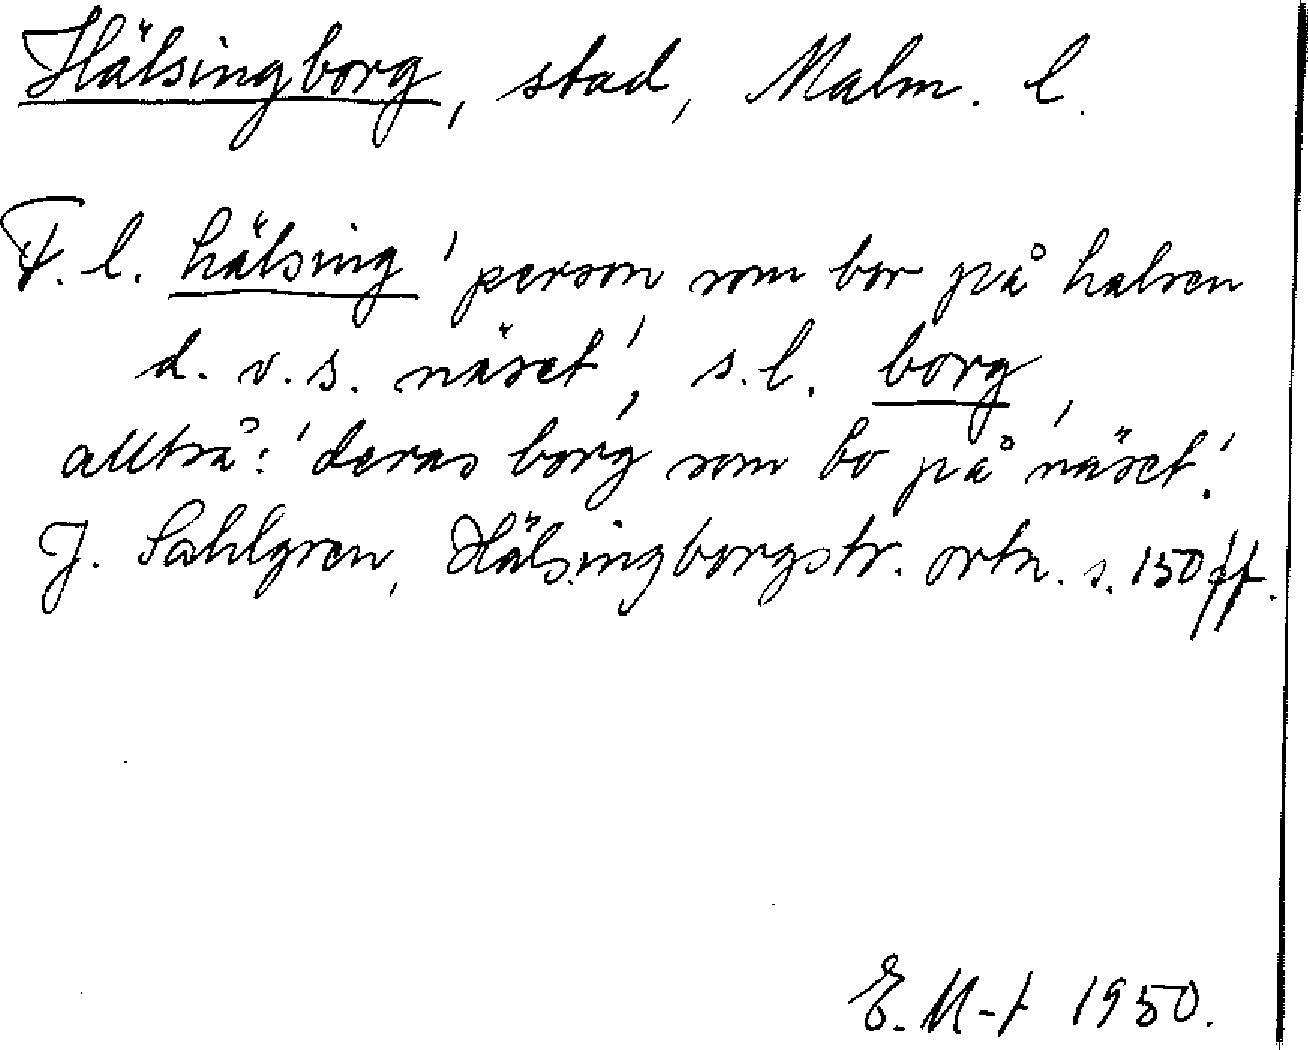 Hälsingborg, stad, Malm. l.
F. l. hälsing 'person som bor på halsen
d. v. s. näset', s. l. borg,
alltså: 'deras borg som bo på näset'.
J. Sahlgren, Hälsingborgstr. ortn. s. 150 ff.
E. M-t 1950.